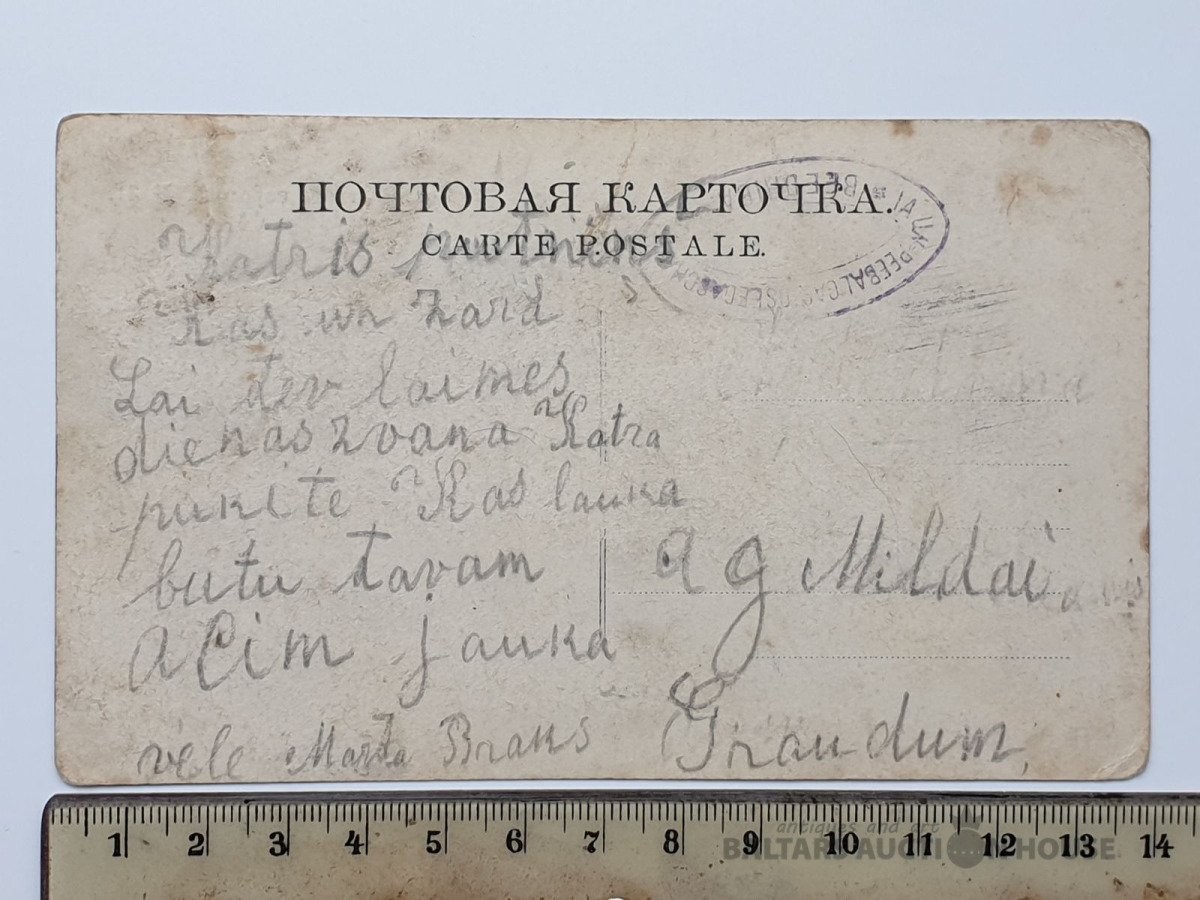 ПОЧТОВАЯ КАРТОЧКА.
CARTE POSTALE.
Katris putnins
Kas un zard
Lai tev laimes
dienas zvana Katra
pukite Kas lauka
butu tavam
acim jauka
vele Marta Brans
a g Mildai
Graudum,
1 2 3 4 5 6 7 8 9 10 11 12 13 14
antiques and art
BALTARS AUCTION HOUSE